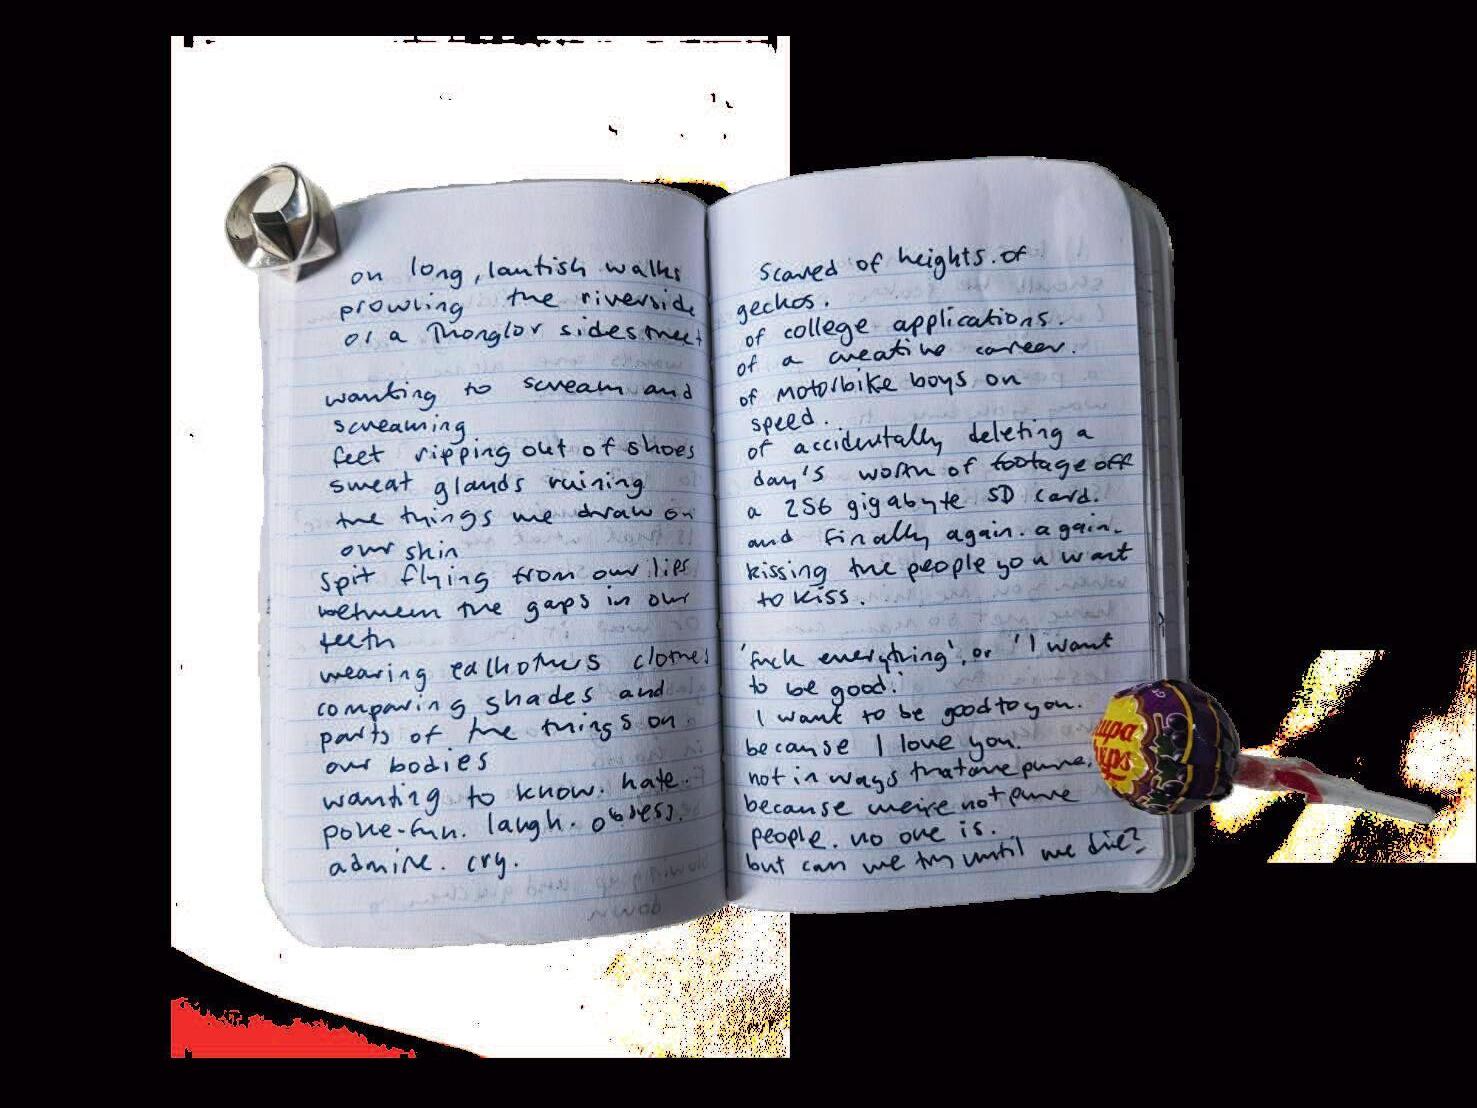 on long, lautish walks
prowling the riverside
or a Thonglor sidestreet
wanting to scream and
screaming
feet ripping out of shoes
sweat glands ruining
the things we draw on
our skin
spit flying from our lips
between the gaps in our
teeth
wearing eachothers clothes
comparing shades and
parts of the things on
our bodies
wanting to know. hate.
poke-fun. laugh. obsess.
admire. cry.
scared of heights. of
geckos.
of college applications.
of a creative career.
of motorbike boys on
speed.
of accidentally deleting a
day's worth of footage off
a 256 gigabyte SD card.
and finally again. again.
kissing the people you want
to kiss.
'fuck everything', or 'I want
to be good.'
I want to be good to you.
because I love you.
not in ways that are pure,
because we're not pure
people. no one is.
but can we try until we die?
Chupa
Chups